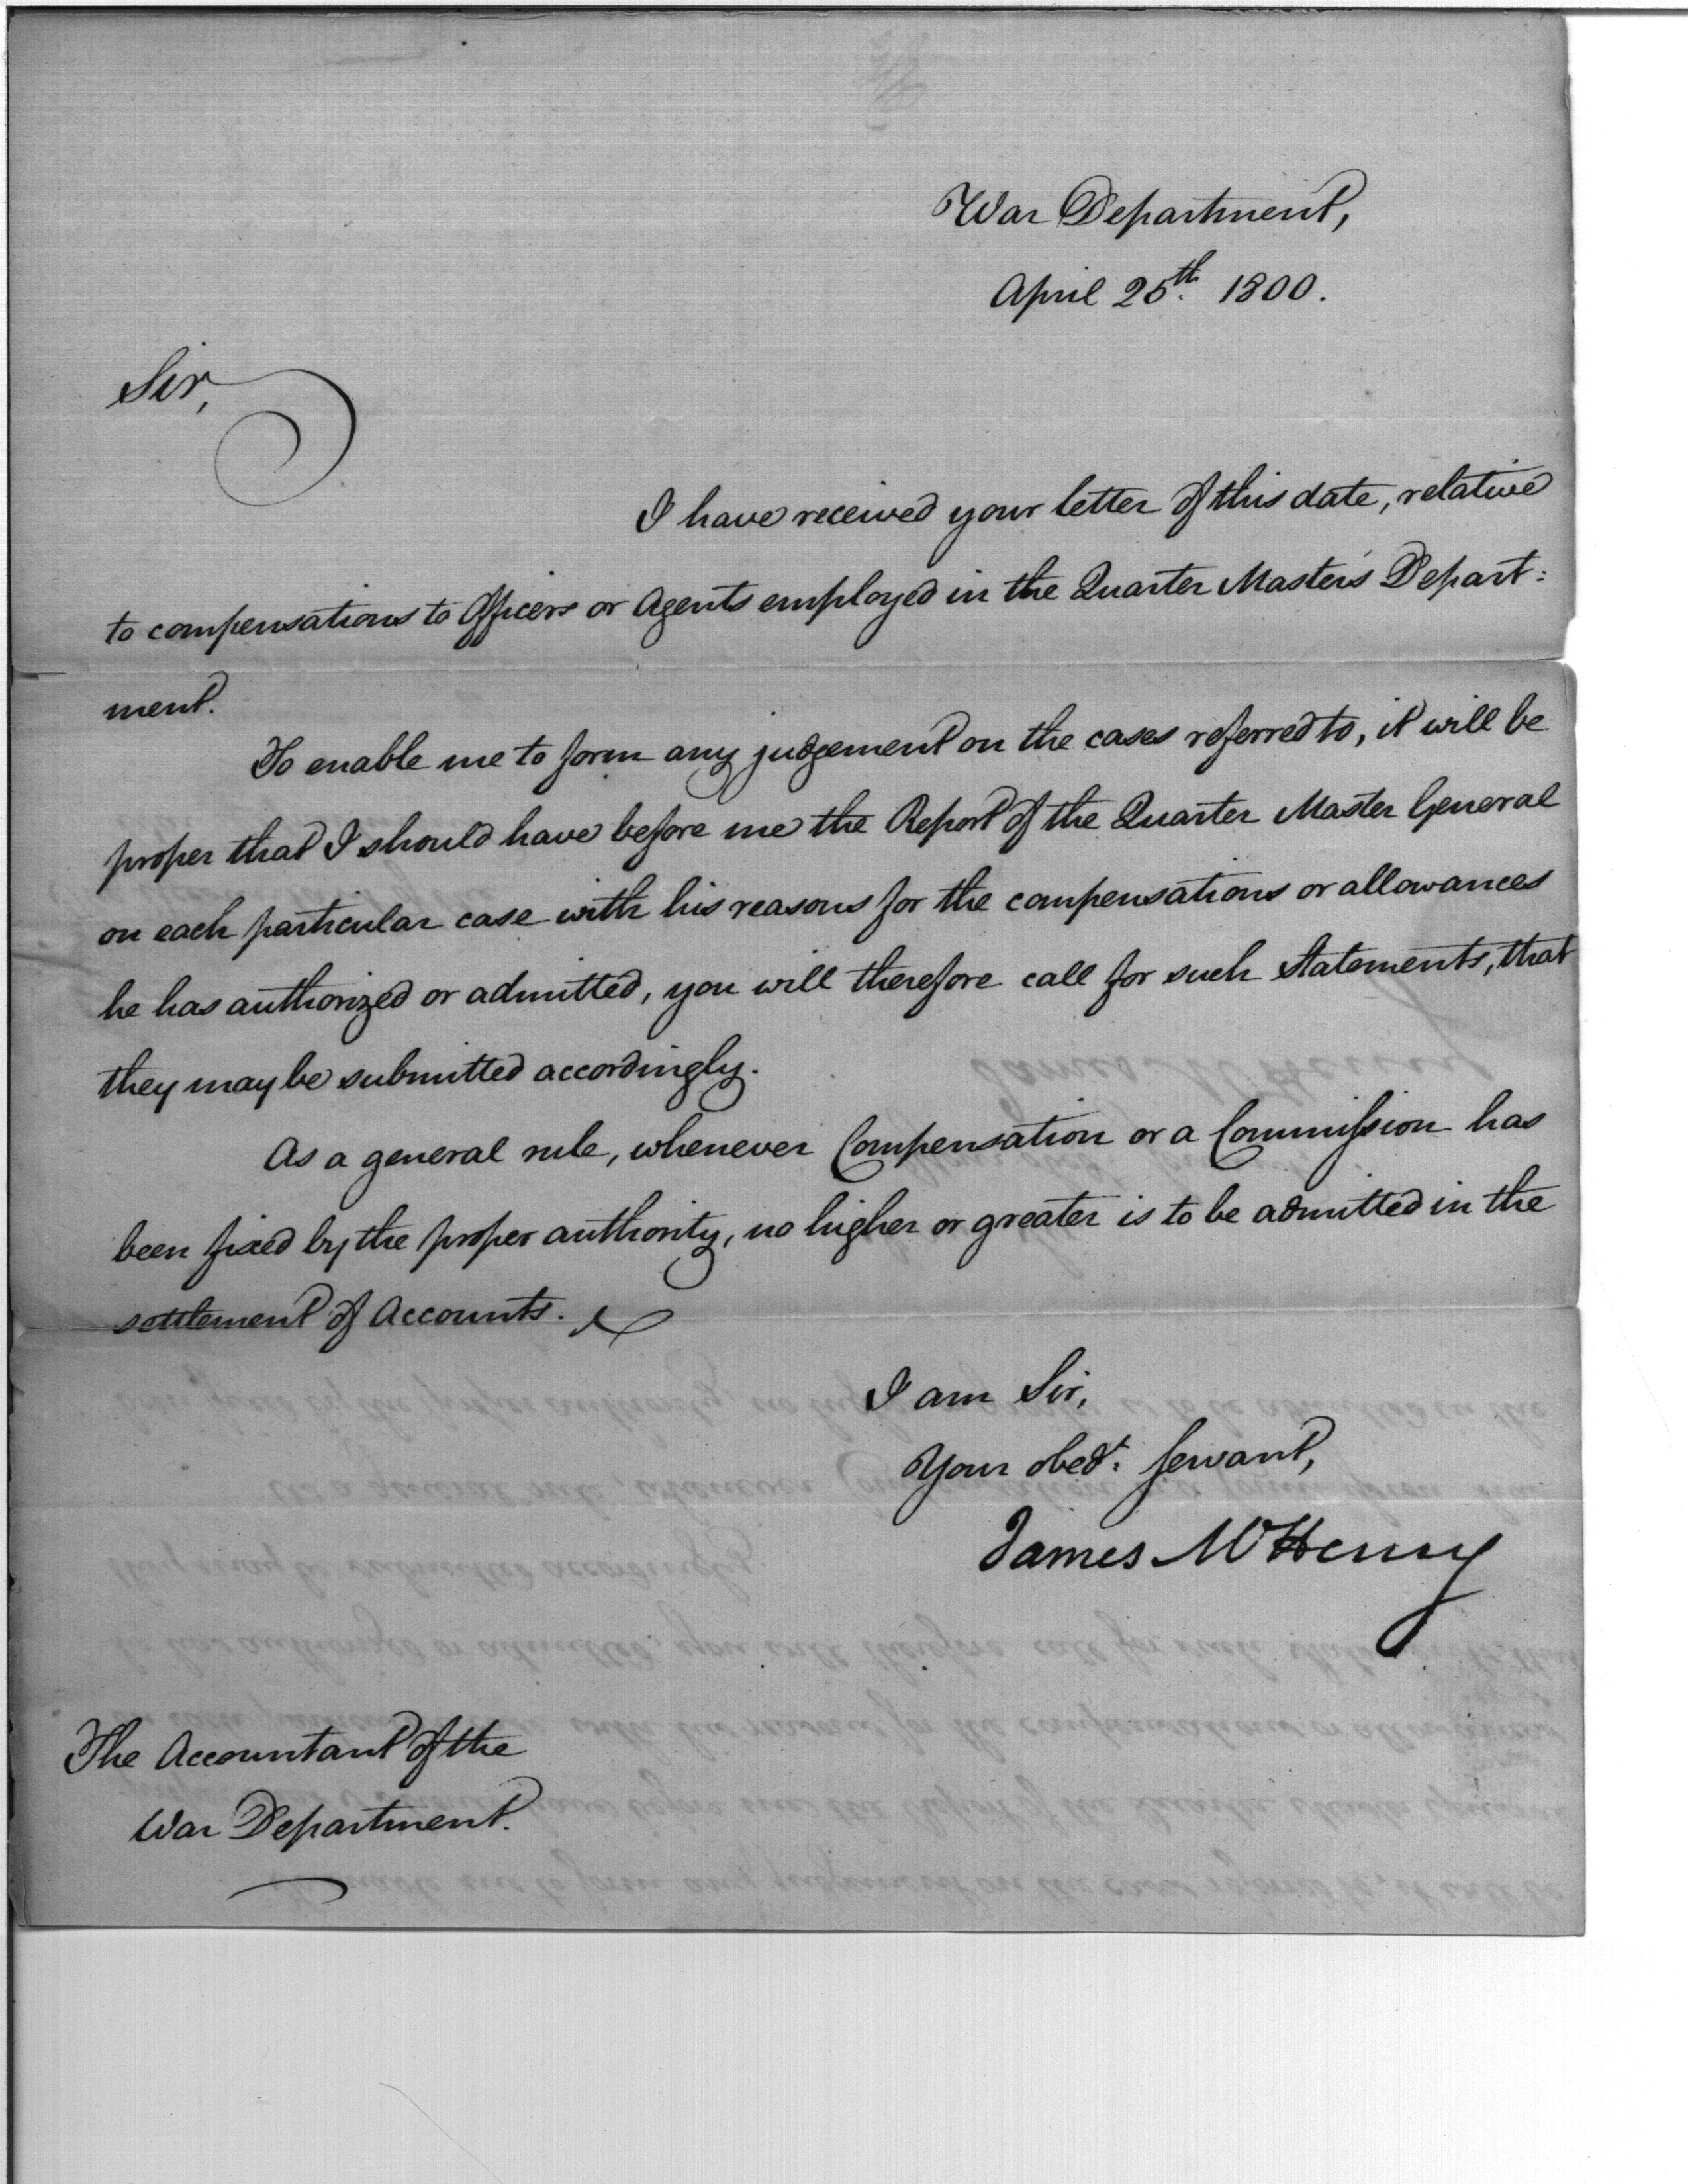 War Department,
April 25th. 1800.
Sir,
I have received your letter of this date, relative
to compensations to Officers or Agents employed in the Quarter Masters Depart:
ment.
To enable me to form any judgement on the cases referred to, it will be
proper that I should have before me the Report of the Quarter Master General
on each particular case with his reasons for the compensations or allowances
he has authorized or admitted, you will therefore call for such Statements, that
they may be submitted accordingly.
As a general rule, whenever Compensation or a Commission has
been fixed by the proper authority, no higher or greater is to be admitted in the
settlement of Accounts.
I am Sir,
Your obedt. Servant,
James McHenry
The Accountant of the
War Department.